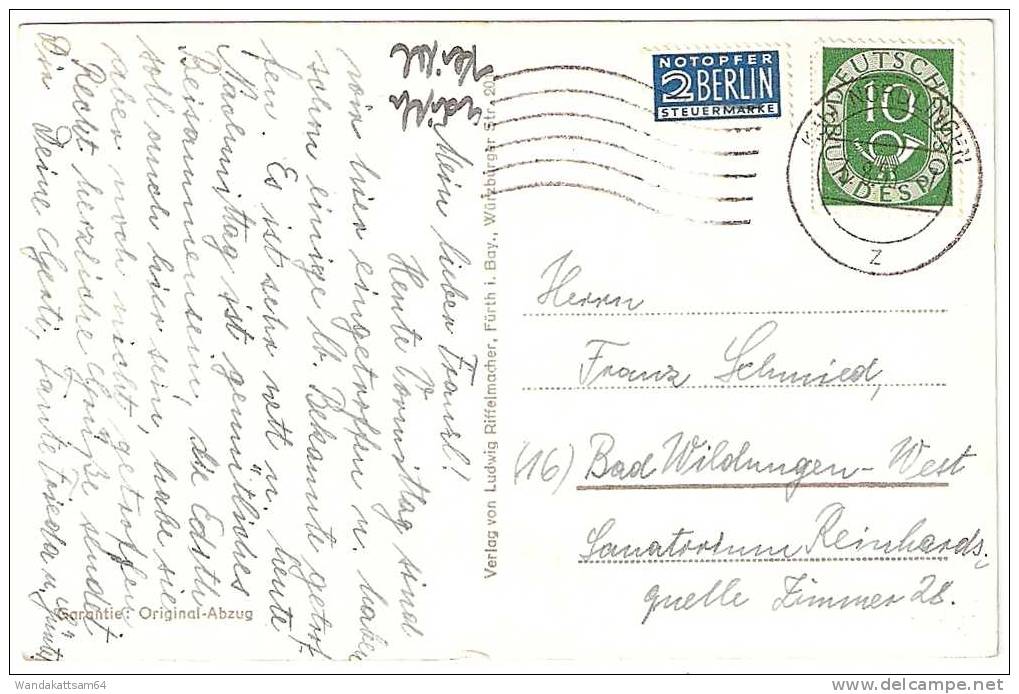 Mein lieber Franzl!
Heute Vormittag sind
wir hier eingetroffen u. haben
schon einige lb. Bekannte getrof-
fen. Es ist sehr nett u. heute
Nachmittag ist gemütliches
Beisammensein, die Edith
soll auch hier sein, habe sie
aber noch nicht getroffen.
Recht herzliche Grüße sendet
Dir Deine Gerti, Tante Frieda u.
Garantie: Original-Abzug
Verlag von Ludwig Riffelmacher, Fürth i. Bay., Würzburger Str. 20
NOTOPFER
2 BERLIN
STEUERMARKE
DEUTSCHE
10
BUNDESPOST
z
Herrn
Franz Schmied,
(16) Bad Wildungen-West
Sanatorium Reinhards-
quelle Zimmer 28.
Wandakattsam64
delcampe.net